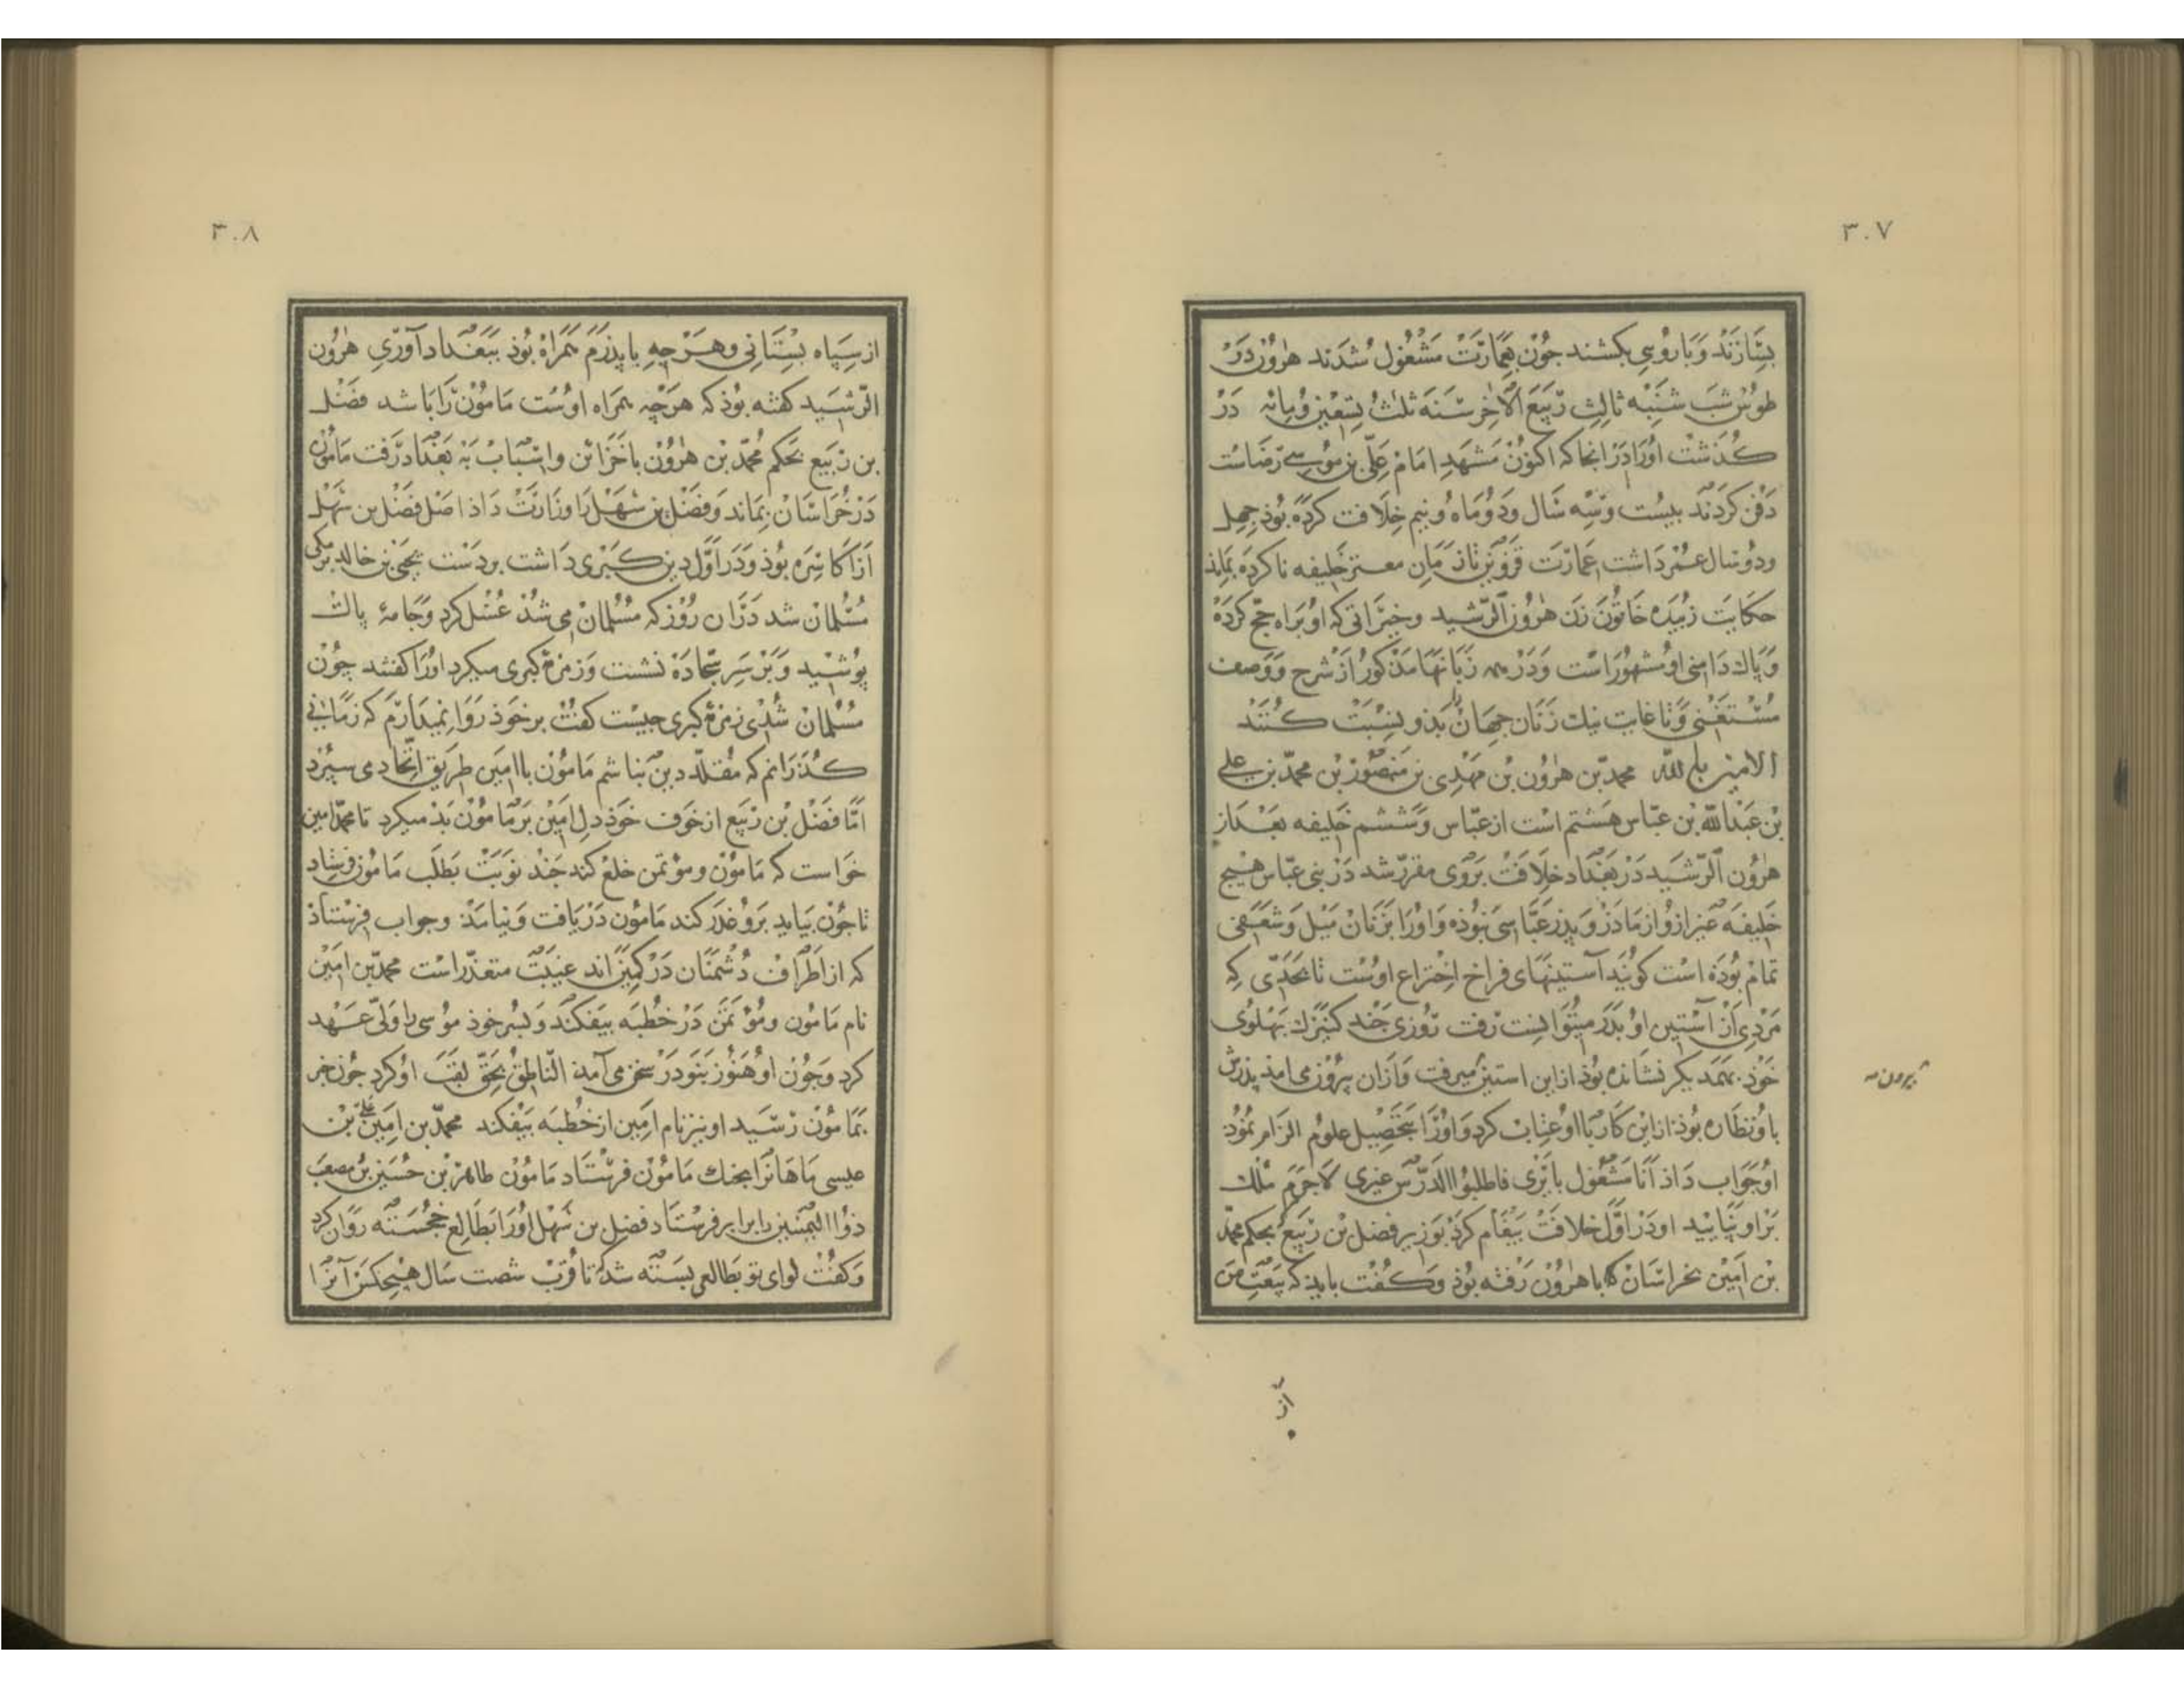 ۳۰۷
بسازند و باروی بکشند جون بعمارت مشغول شدند هرون در
طوس شب شنبه ثالث ربیع الآخر سنه ثلث تسعین ومایه در
کذشت اورا در انجا که اکنون مشهد امام علی بن موسی رضاست
دفن کردند بیست وسه سال ودوماه ونیم خلافت کرده بوذ جهل
ودوسال عمر داشت عمارت قزوین تا زمان معتز خلیفه ناکرده بماند
حکایت زبیده خاتون زن هرون الرشید وخیراتی که او براه حج کرده
وپاك دامنی او مشهوراست ودر همه زبانها مذکور از شرح ووصف
مستغنی وتا غایت نیك زنان جهان را بذو نسبت کنند
الامین بالله محمد بن هرون بن مهدی بن منصور بن محمد بن علی
بن عبدالله بن عباس هشتم است از عباس وششم خلیفه بعد از
هرون الرشید در بغداد خلافت بروی مقرر شد در بنی عباس هیج
خلیفه غیر ازو از مادر و پدر عباسی نبوذه واورا بزنان میل وشعفی
تمام بوده است کویند آستینهای فراخ اختراع اوست تا بحدی که
مردی از آستین او بدر میتوانست رفت روزی جند کنیزك بهلوی
خوذ بهمدیکر نشانده بوذ از این استین میرفت وازان بیرون می امذ پذرش
بیرون صه
با او نظاره بوذ از این کار با او عتاب کرد واورا بتحصیل علوم الزام نموذ
او جواب داذ انا مشغول بایری فاطلبوا الدرس غیری لاجرم ملك
براو نپایید او در اول خلافت بیغام کرد بوزیر فضل بن ربیع بحکم محمد
بن امین بخراسان که با هرون رفته بوذ وکفت باید که بیعت من
از
۳۰۸
از سپاه بستانی وهرچه با پذرم همراه بوذ ببغداد آوری هرون
الرشید کفته بوذ که هرچه همراه اوست مامون را باشد فضل
بن ربیع بحکم محمد بن هرون با خزاین واسباب به بغداد رفت مامون
در خراسان بماند وفضل بن سهل را وزارت داذ اصل فضل بن سهل
از اکاسره بوذ ودر اول دین کبری داشت بردست یحیی بن خالد برمکی
مسلمان شد در ان روز که مسلمان می شد غسل کرد وجامه پاك
پوشید وبر سر سجاده نشست وزمزمه کبری میکرد اورا کفتند چون
مسلمان شدی زمزمه کبری جیست کفت بر خوذ روا نمیدارم که زمانی
کذرانم که مقلد دین نباشم مامون با امین طریق اتحاد می سپرد
اما فضل بن ربیع از خوف خوذ دل امین بر مامون بد میکرد تا محمد امین
خواست که مامون ومؤتمن خلع کند جند نوبت بطلب مامون فرستاد
تا جون بیاید برو غدر کند مامون دریافت ونیامذ وجواب فرستاذ
که از اطراف دشمنان در کمین اند غیبت متعذر است محمد بن امین
نام مامون ومؤتمن در خطبه بیفکند وبسر خوذ موسی را ولی عهد
کرد وجون او هنوز بنو در سخن می آمد الناطق بحق لقب او کرد جون خبر
بمامون رسید او نیز نام امین از خطبه بیفکند محمد بن امین علی بن
عیسی ماهانرا بجنك مامون فرستاد مامون طاهر بن حسین بن مصعب
ذو الیمینین را برابر فرستاد فضل بن سهل اورا بطالع خجسته روان کرد
وکفت لوای تو بطالعی بسته شد تا قرب شصت سال هیجکس آنرا